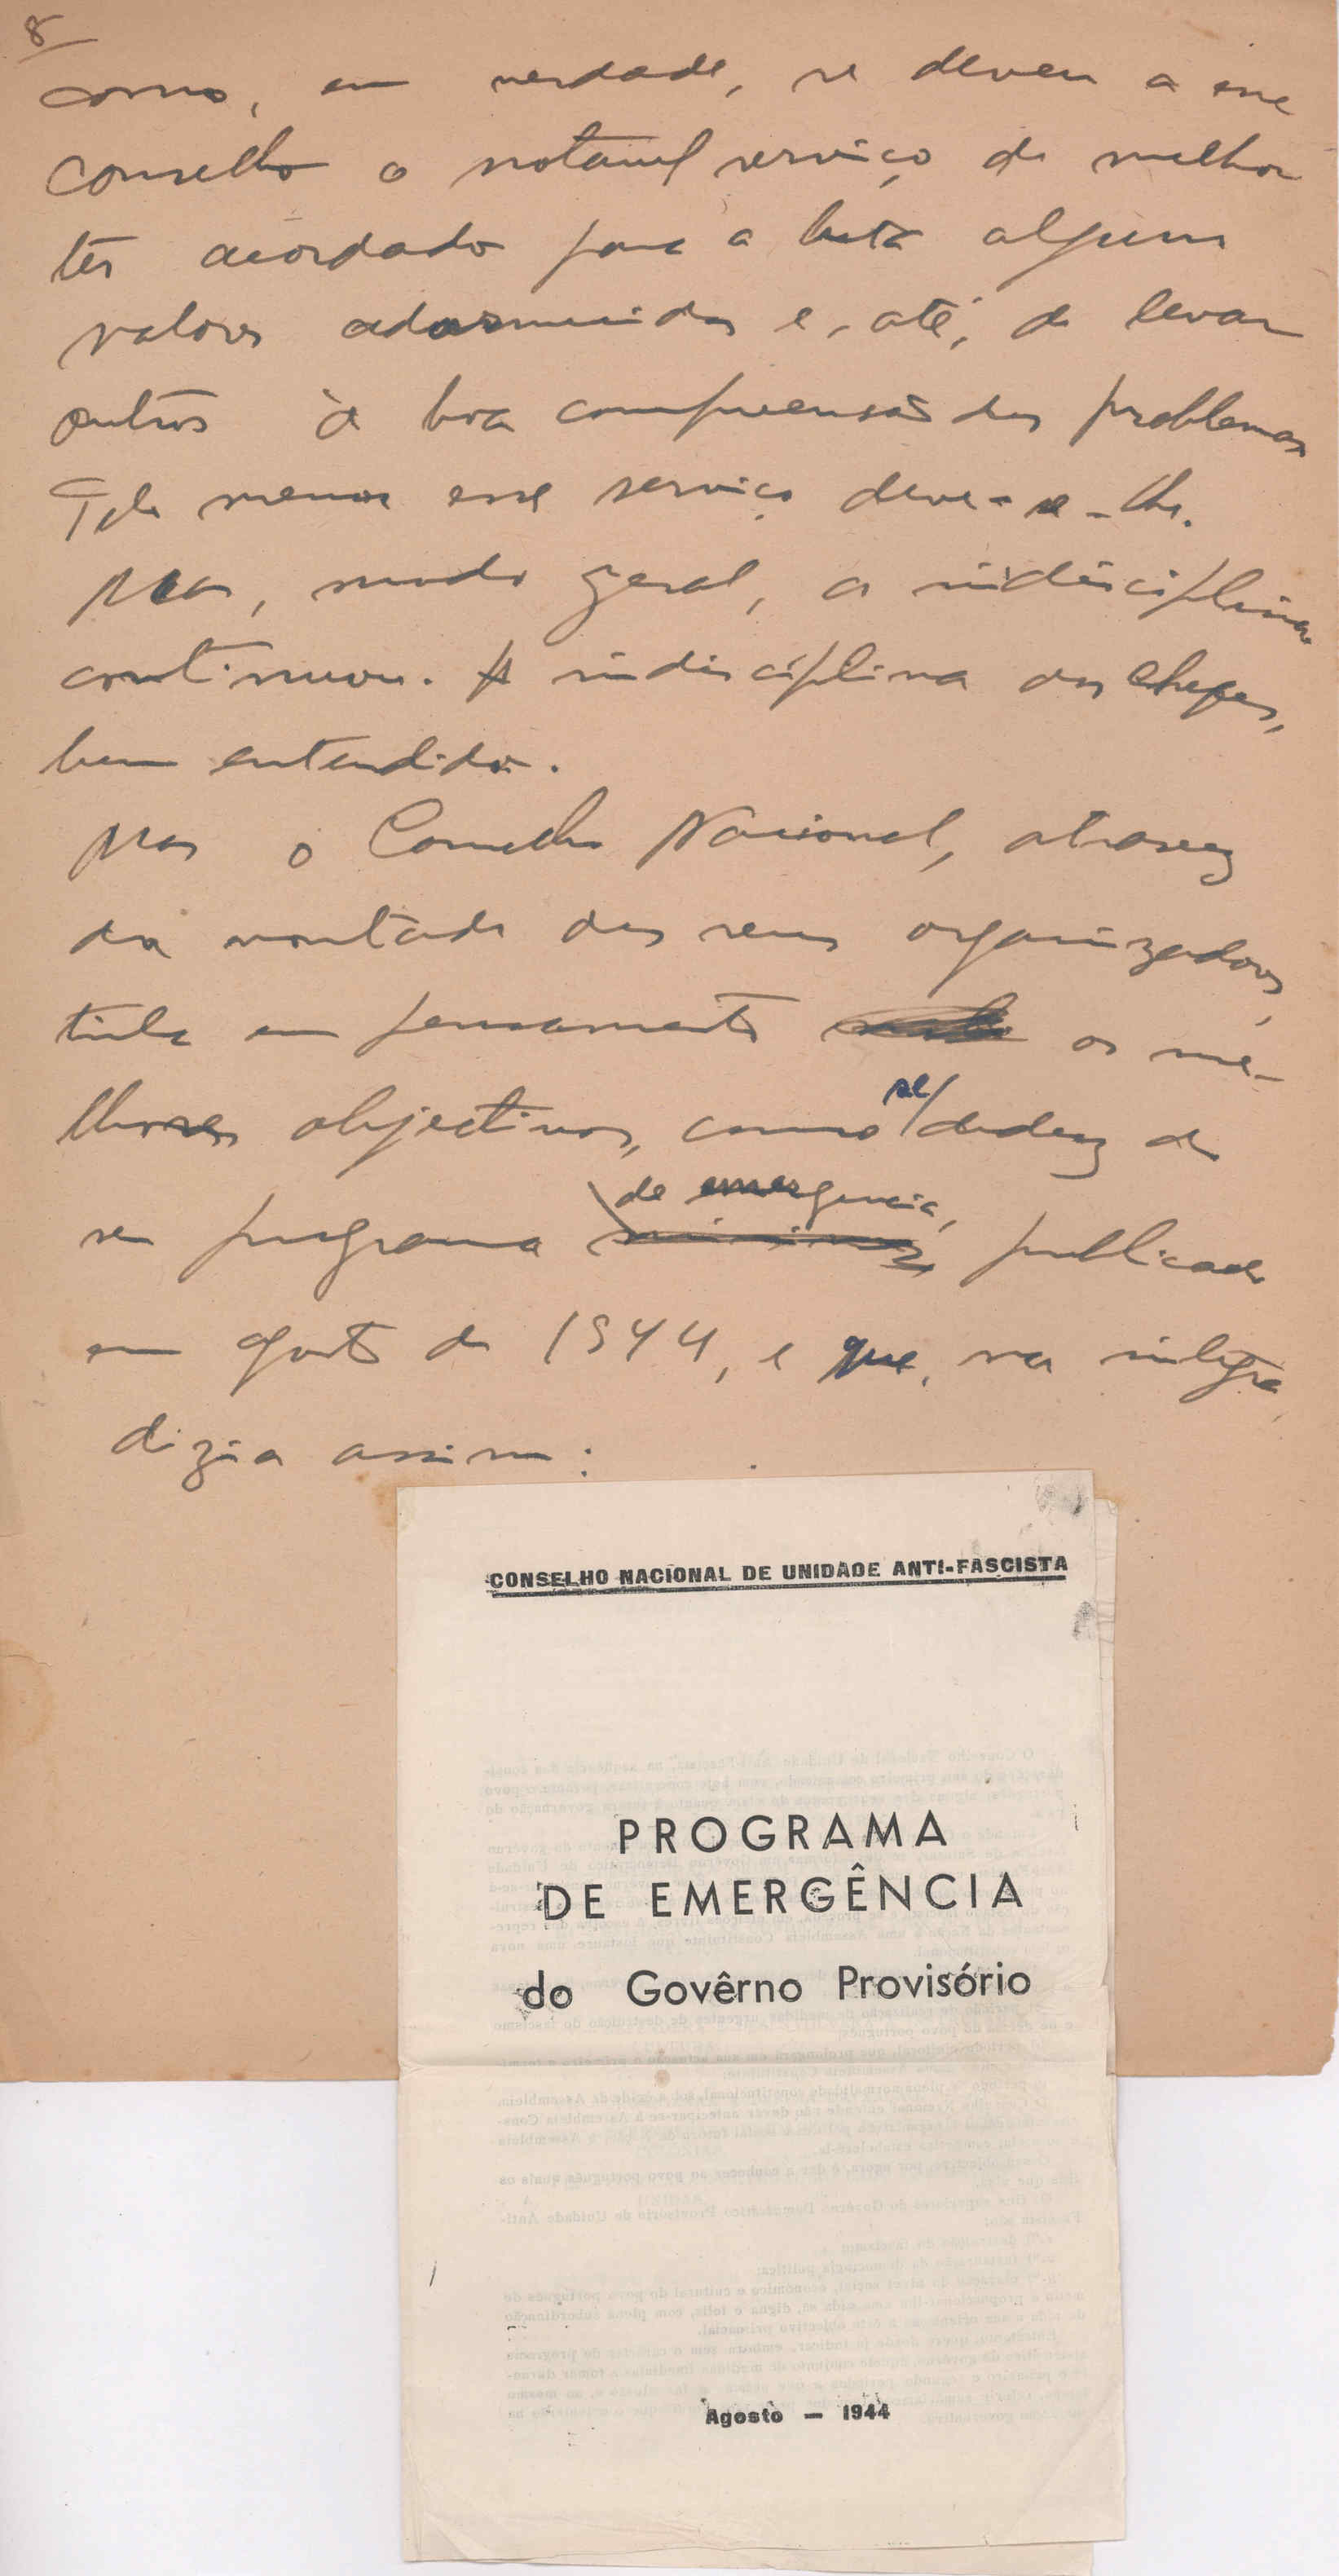 8
como, em verdade, se deveu a esse
conselho o notavel serviço de melhor
ter acordado para a luta alguns
valores adormecidos e, até, de levar
outros à boa compreensão dos problemas
Pelo menos esse serviço deve-se-lhe.
Mas, modo geral, a indisciplina
continuou. A indisciplina dos chefes,
bem entendido.
Mas o Conselho Nacional, atravez
da vontade dos seus organizadores,
tinha em pensamento os me-
lhores objectivos, como se deduz do
seu programa de emergencia, publicado
em agosto de 1944, e que, na integra,
dizia assim:
CONSELHO NACIONAL DE UNIDADE ANTI-FASCISTA
PROGRAMA
DE EMERGÊNCIA
do Govêrno Provisório
Agosto — 1944